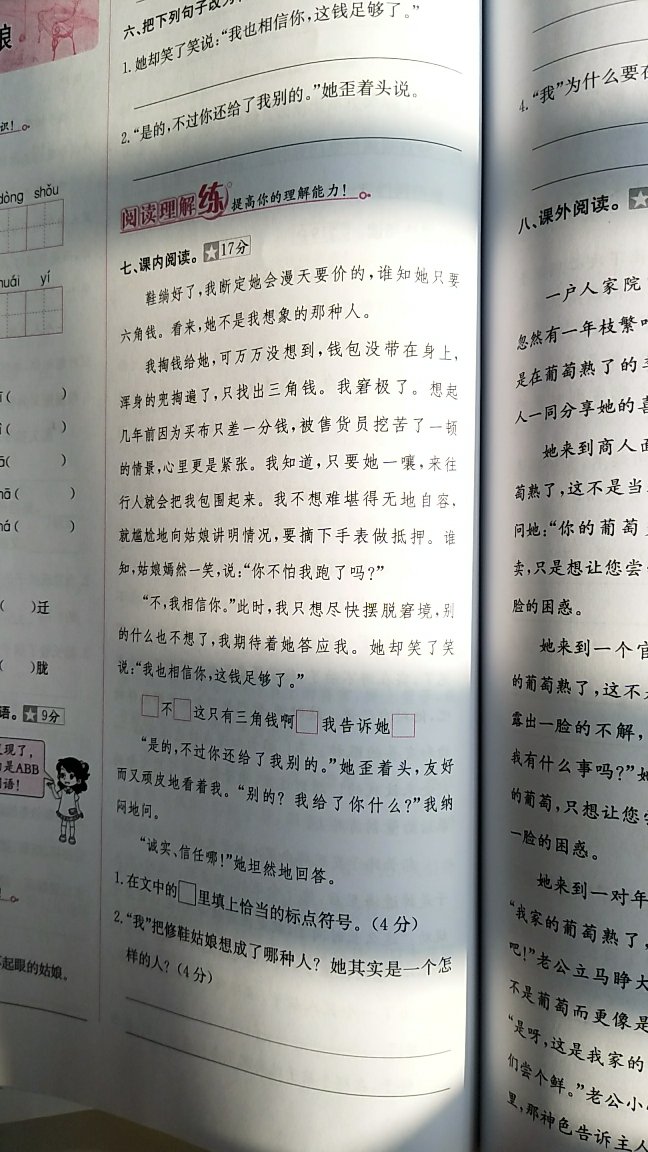 娘
识!
dòng shǒu
huái yí
( )
( )
( )
hā( )
há( )
( )迁
( )胧
语。★9分
现了,
是ABB
语!
起眼的姑娘。
六、把下列句子改为
1.她却笑了笑说:“我也相信你,这钱足够了。”
2.“是的,不过你还给了我别的。”她歪着头说。
阅读理解练 提高你的理解能力!
七、课内阅读。★17分
鞋绱好了,我断定她会漫天要价的,谁知她只要
六角钱。看来,她不是我想象的那种人。
我掏钱给她,可万万没想到,钱包没带在身上,
浑身的兜掏遍了,只找出三角钱。我窘极了。想起
几年前因为买布只差一分钱,被售货员挖苦了一顿
的情景,心里更是紧张。我知道,只要她一嚷,来往
行人就会把我包围起来。我不想难堪得无地自容,
就尴尬地向姑娘讲明情况,要摘下手表做抵押。谁
知,姑娘嫣然一笑,说:“你不怕我跑了吗?”
“不,我相信你。”此时,我只想尽快摆脱窘境,别
的什么也不想了,我期待着她答应我。她却笑了笑
说:“我也相信你,这钱足够了。”
□不□这只有三角钱啊□我告诉她□
“是的,不过你还给了我别的。”她歪着头,友好
而又顽皮地看着我。“别的?我给了你什么?”我纳
闷地问。
“诚实、信任哪!”她坦然地回答。
1.在文中的□里填上恰当的标点符号。(4分)
2.“我”把修鞋姑娘想成了哪种人?她其实是一个怎
样的人?(4分)
4.“我”为什么要在
八、课外阅读。★
一户人家院
忽然有一年枝繁
是在葡萄熟了的
人一同分享她的喜
她来到商人
萄熟了,这不是当
问她:“你的葡萄
卖,只是想让您尝
脸的困惑。
她来到一个官
的葡萄熟了,这不
露出一脸的不解,
我有什么事吗?”她
的葡萄,只想让您
一脸的困惑。
她来到一对年
“我家的葡萄熟了,
吧!”老公立马睁大
不是葡萄而更像是
“是呀,这是我家的
们尝个鲜。”老公小
里,那神色告诉主人